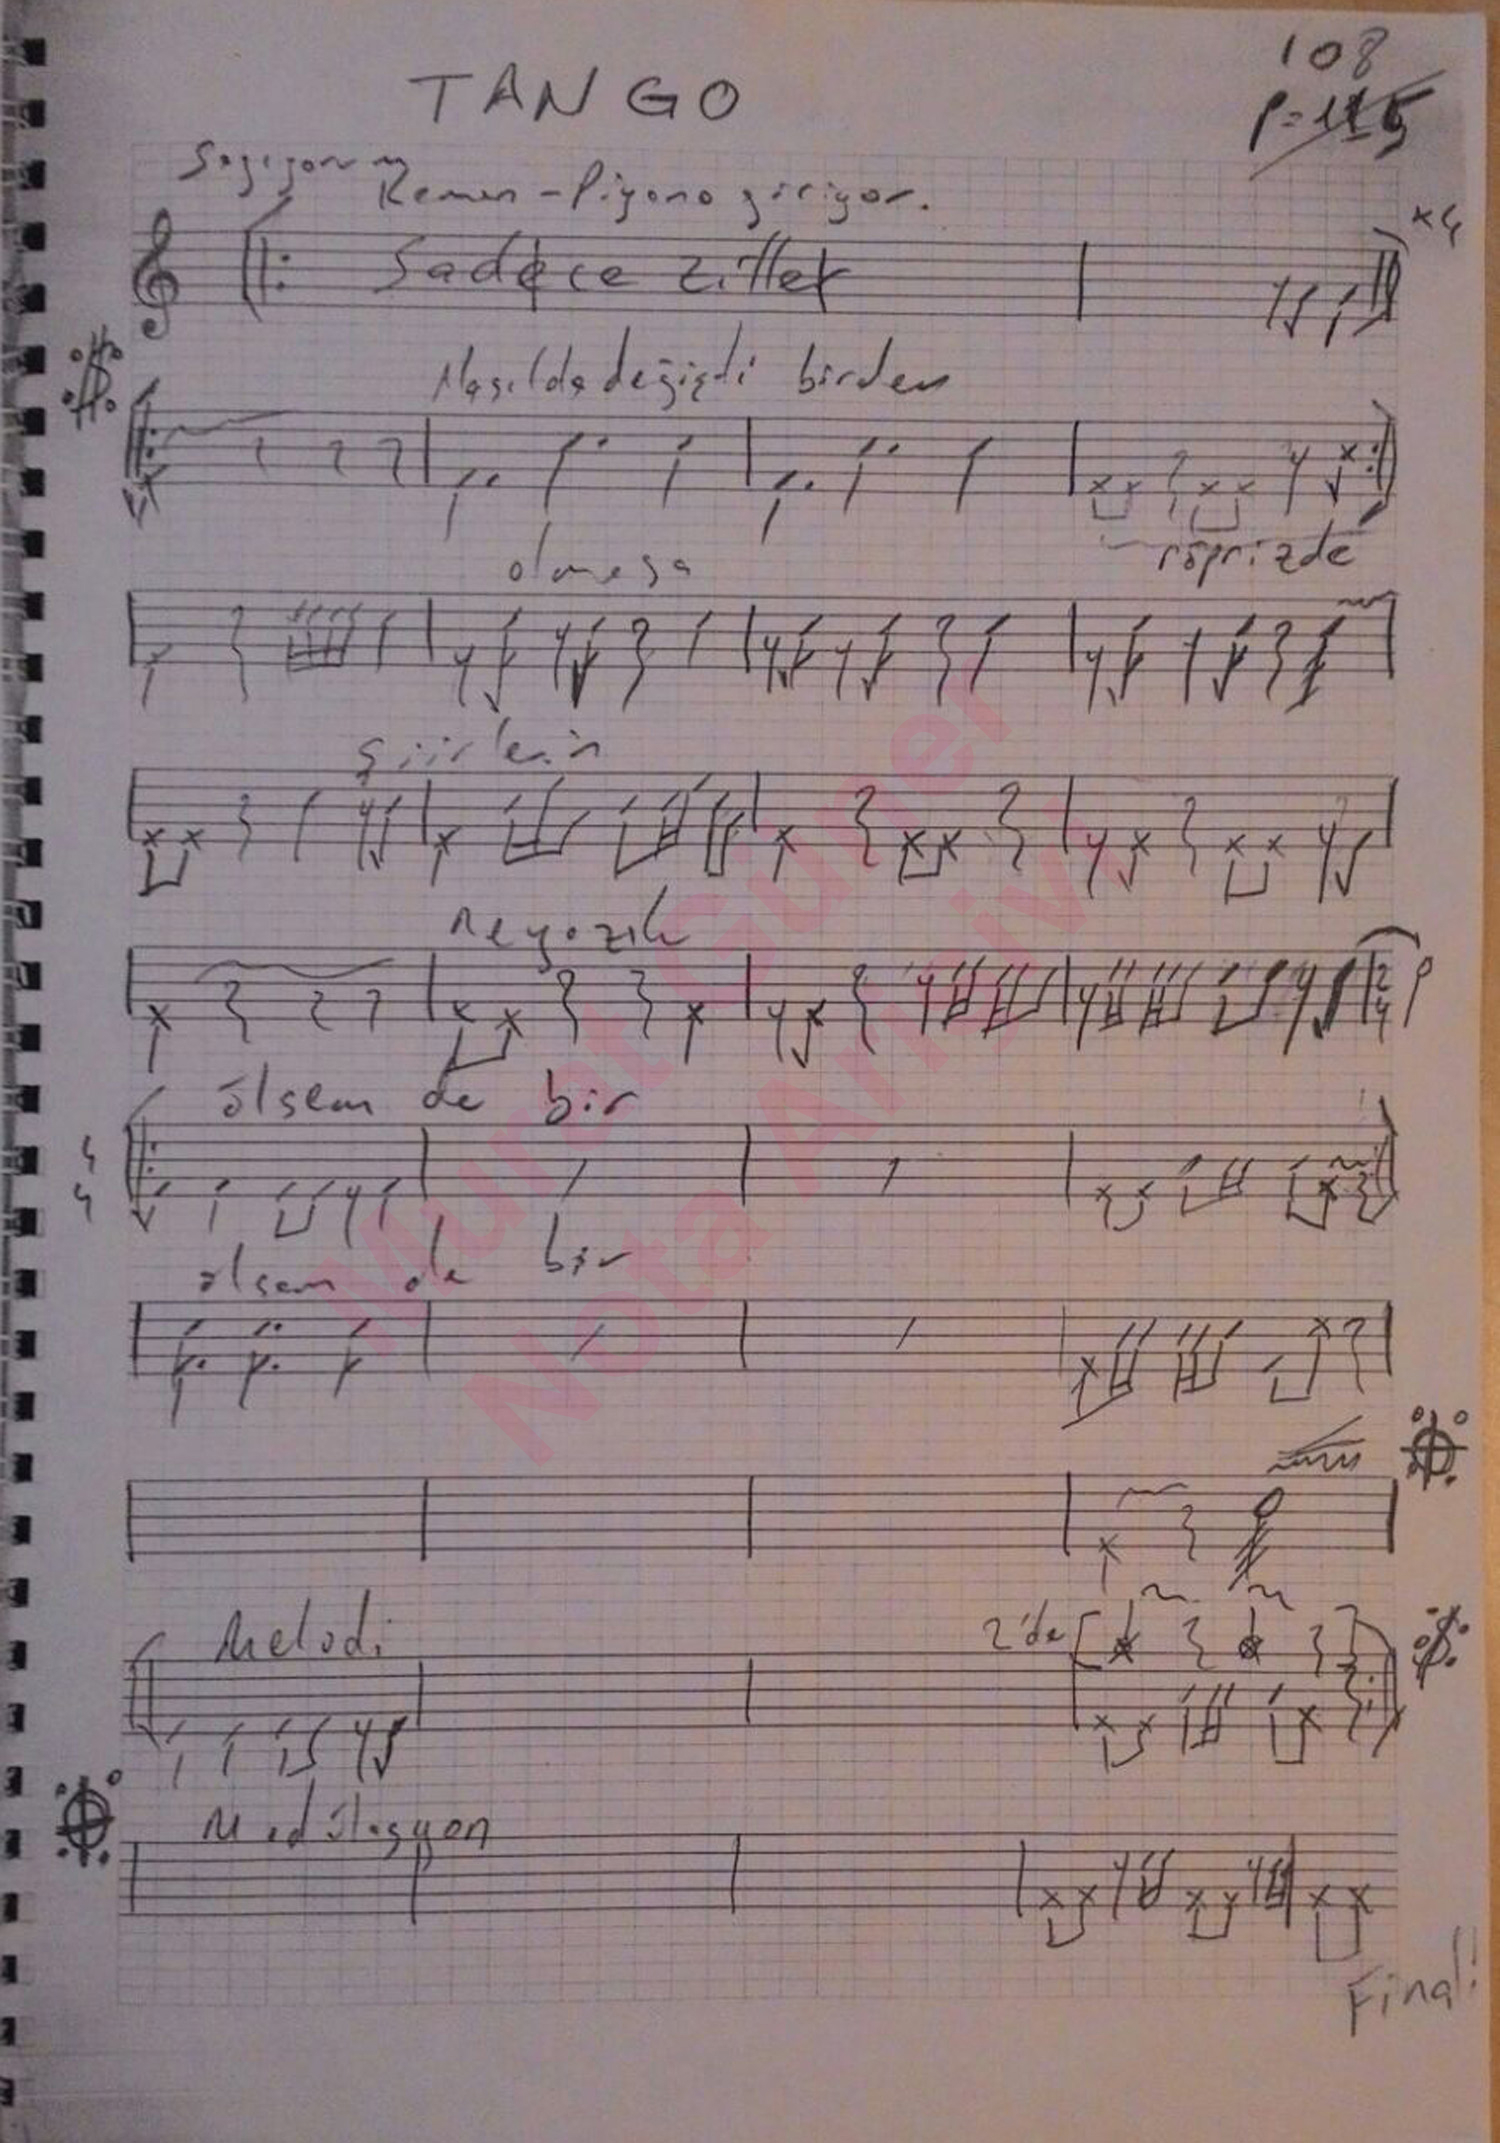 TANGO
108
Keman - Piyano giriyor.
Sadece ziller
x4
Nasılda değişti birden
röprizde
olmasa
şiirlerin
Ne yazık
2
4
ölsem de bir
4
4
ölsem de bir
Melodi
2'de
Modülasyon
Final
Murat Güner
Nota Arşivi